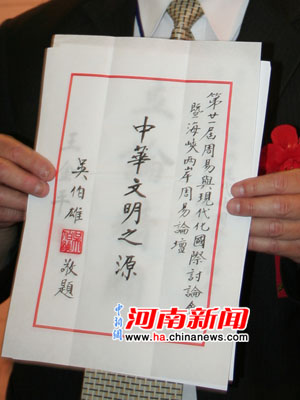 第廿一届周易與現代化國際討論會
暨海峽兩岸周易論壇
中華文明之源
吳伯雄
敬題
中新网 河南新闻
www.ha.chinanews.com